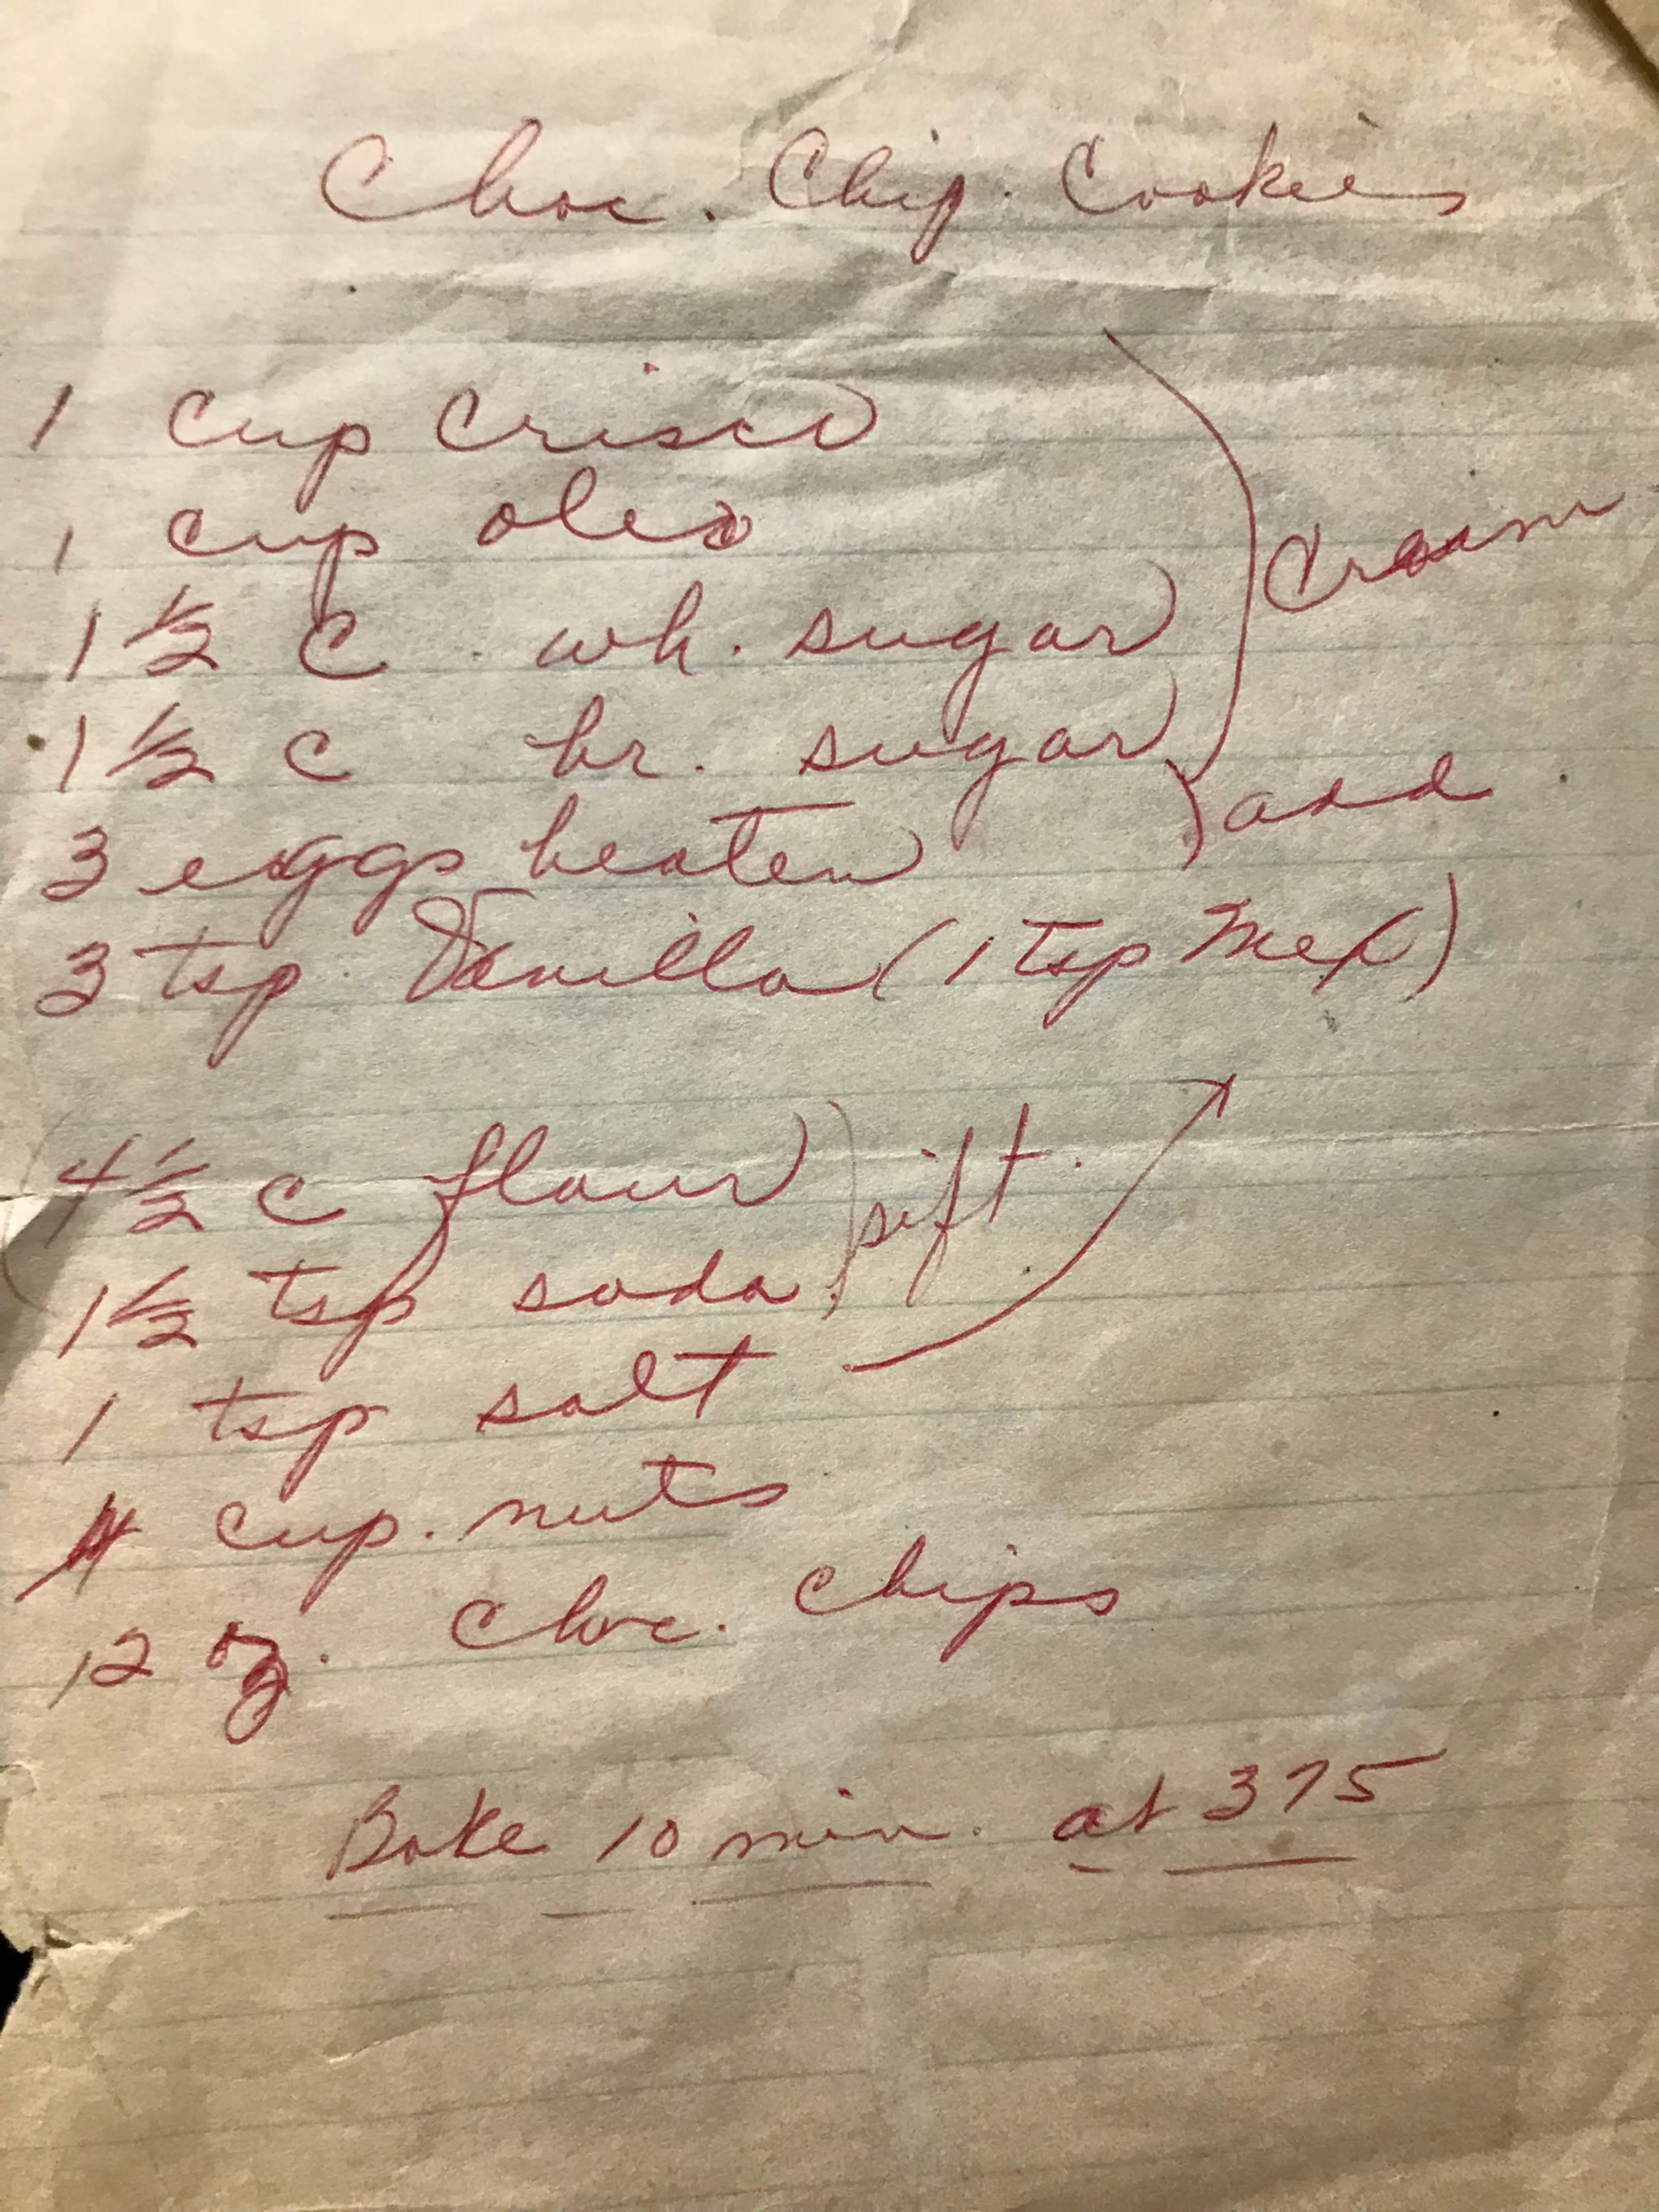 Choc. Chip. Cookies
1 cup Crisco
1 cup oleo
Cream
1 1/2 C. wh. sugar
1 1/2 C br. sugar
3 eggs beaten
add
3 tsp. Vanilla (1 tsp Mex)
4 1/2 C flour
sift.
1 1/2 tsp soda
1 tsp salt
cup. nuts
12 oz. Choc. Chips
Bake 10 min. at 375